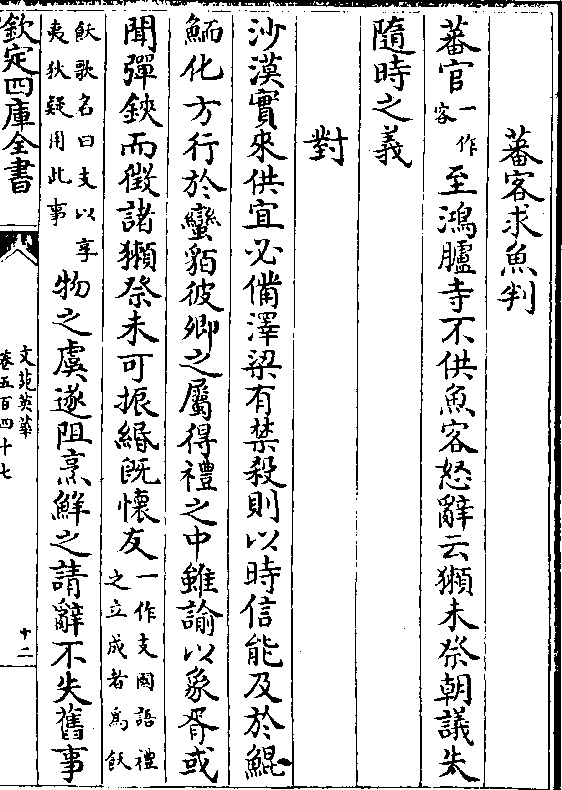 蕃客求魚判
蕃官一作客至鴻臚寺不供魚客怒辭云獺未祭朝議失
隨時之義
對
沙漠實來供宜必備澤梁有禁殺則以時信能及於鯤
鮞化方行於蠻貊彼卿之屬得禮之中雖諭以象胥或
聞彈鋏而徵諸獺祭未可振緡旣懷友一作支國語禮之立成者爲飫
飫歌名曰支以享夷狄疑用此事物之虞遂阻烹鮮之請辭不失舊事
欽定四庫全書
文苑英華
卷五百四十七
十二